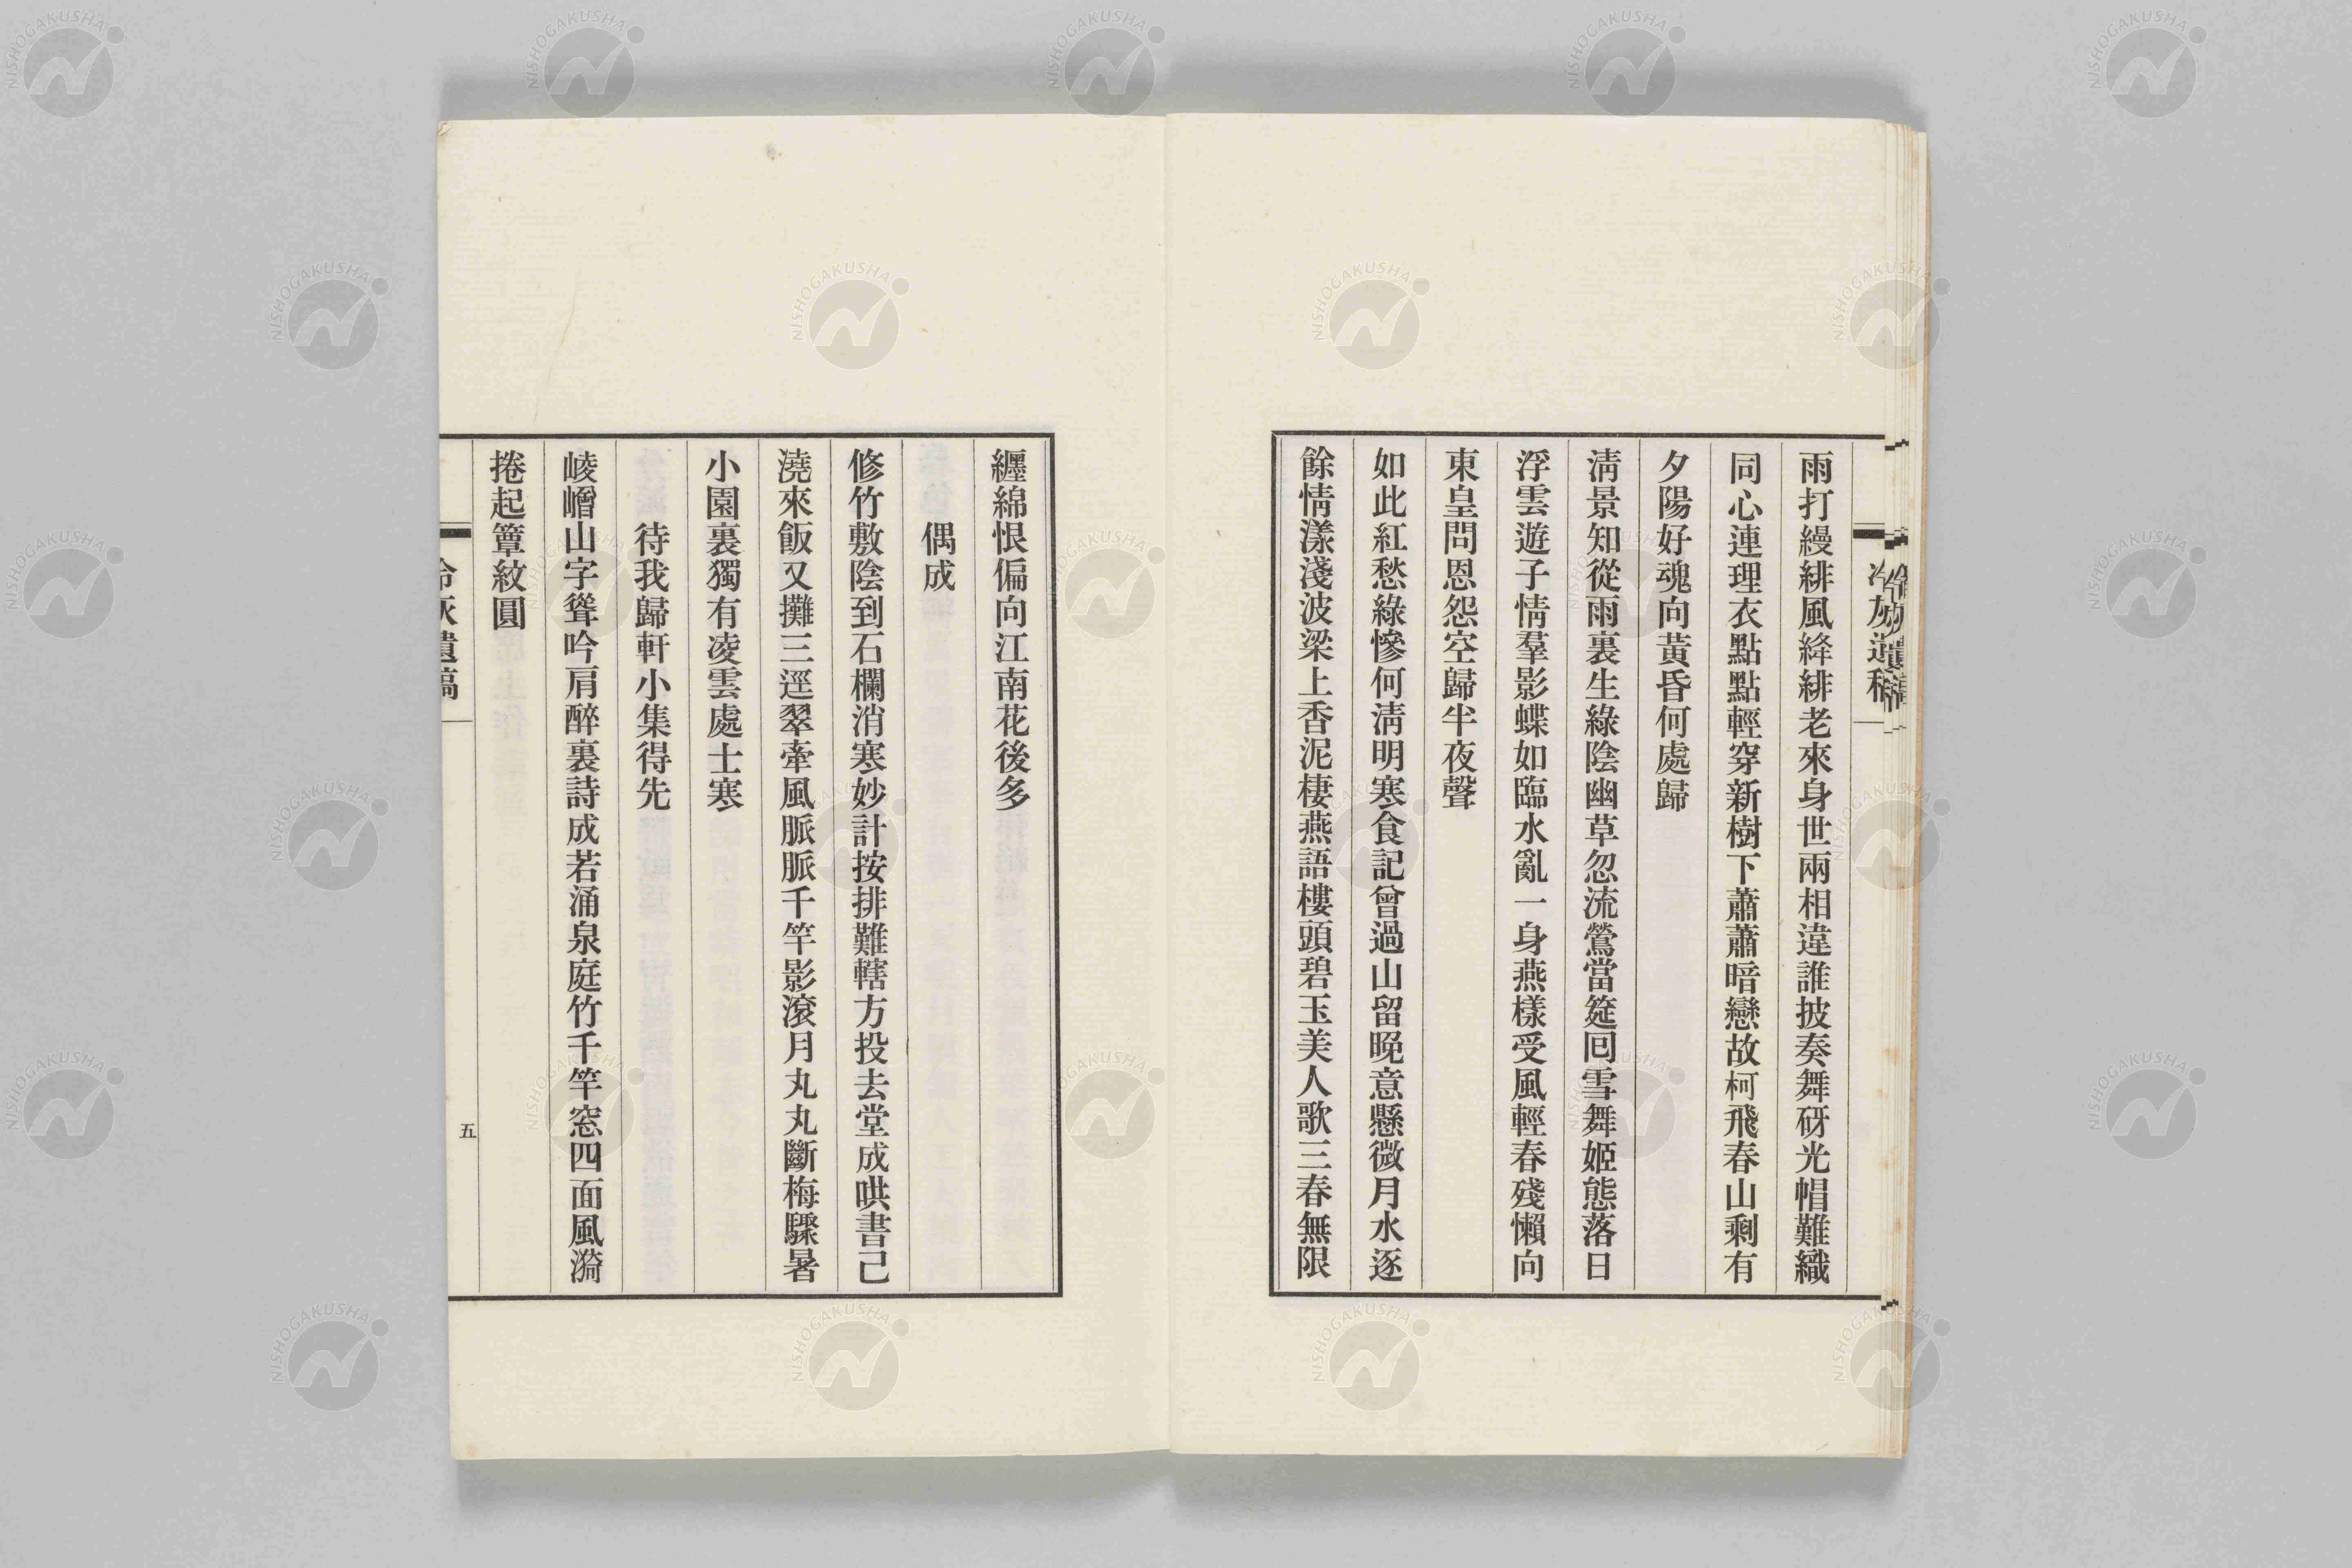 冷灰遺稿
雨打縵緋風絳緋老來身世兩相違誰披奏舞砑光帽難織
同心連理衣點點輕穿新樹下蕭蕭暗戀故柯飛春山剩有
夕陽好魂向黃昏何處歸
淸景知從雨裏生綠陰幽草忽流鶯當筵囘雪舞姬態落日
浮雲遊子情羣影蝶如臨水亂一身燕樣受風輕春殘懶向
東皇問恩怨空歸半夜聲
如此紅愁綠慘何淸明寒食記曾過山留晚意懸微月水逐
餘情漾淺波梁上香泥棲燕語樓頭碧玉美人歌三春無限
纏綿恨偏向江南花後多
偶成
修竹敷陰到石欄消寒妙計按排難轄方投去堂成哄書已
澆來飯又攤三逕翠牽風脈脈千竿影滾月丸丸斷梅驟暑
小園裏獨有凌雲處士寒
待我歸軒小集得先
崚嶒山字聳吟肩醉裏詩成若涌泉庭竹千竿窓四面風漪
捲起簟紋圓
冷灰遺稿
五
NISHOGAKUSHA